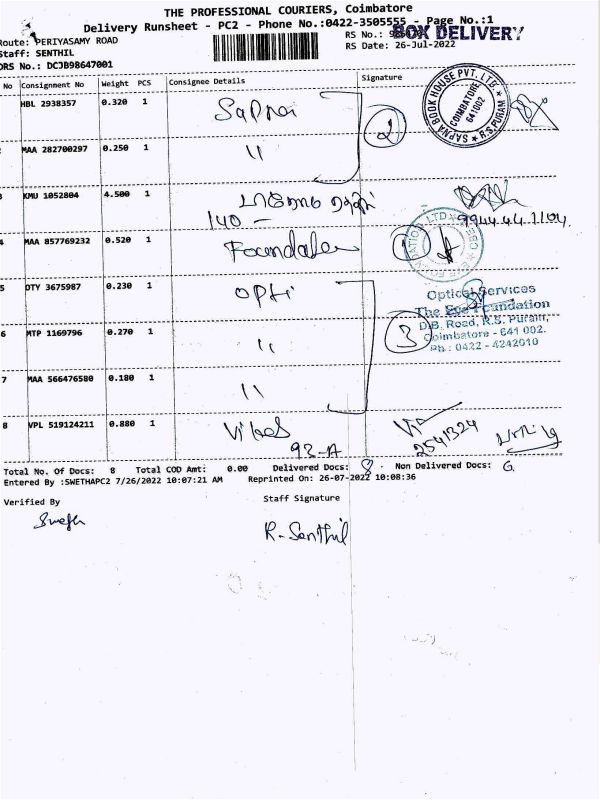 THE PROFESSIONAL COURIERS, Coimbatore
Delivery Runsheet - PC2 - Phone No.:0422-3505555 - Page No.:1
BOX DELIVERY
Route: PERIYASAMY ROAD
RS No.:
Staff: SENTHIL
RS Date: 26-Jul-2022
DRS No.: DCJB98647001
No Consignment No Weight PCS Consignee Details Signature
HBL 2938357 0.320 1 Sapna
2
SAPNA BOOK HOUSE PVT. LTD. ★ R.S.PURAM ★
COIMBATORE
641002
MAA 282700297 0.250 1 "
3 KMU 1052804 4.500 1
140 -
4 MAA 857769232 0.520 1 Foundation
1
5 DTY 3675987 0.230 1 Opti
Optical Services
The Eye Foundation
D.B. Road, R.S. Puram,
Coimbatore - 641 002.
Ph : 0422 - 4242010
3
6 MTP 1169796 0.270 1 "
7 MAA 566476580 0.180 1 "
8 VPL 519124211 0.880 1 Vikas
93-A
2541324
Total No. Of Docs: 8 Total COD Amt: 0.00 Delivered Docs: 8 Non Delivered Docs:
Entered By :SWETHAPC2 7/26/2022 10:07:21 AM Reprinted On: 26-07-2022 10:08:36
Verified By Staff Signature
R. Senthil